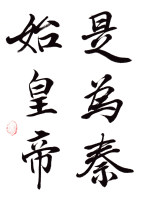 是為秦
始皇帝